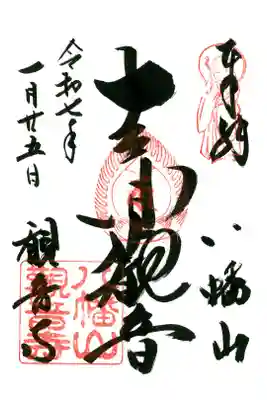 奉拝
八幡山
十一面観音
令和七年
一月廿五日
観音寺
八幡山
観音寺